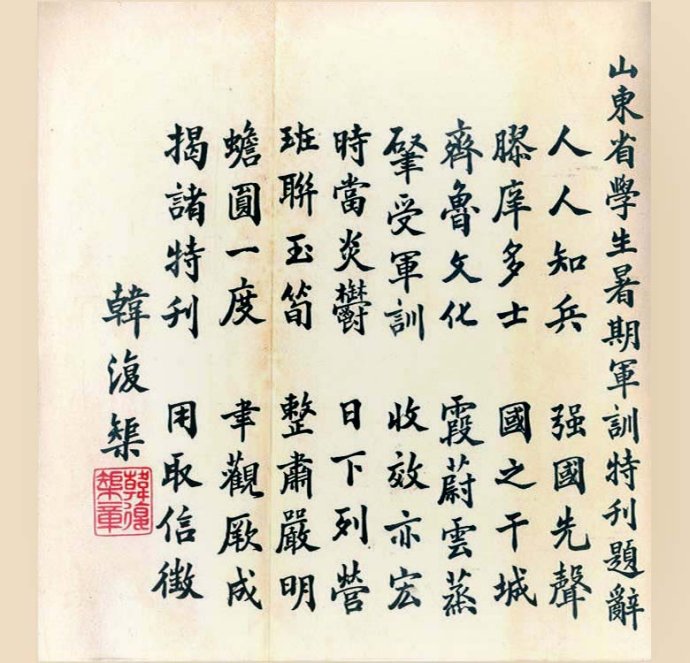 山東省學生暑期軍訓特刊題辭
人人知兵 强國先聲
膠庠多士 國之干城
齊魯文化 霞蔚雲蒸
肇受軍訓 收效亦宏
時當炎鬱 日下列營
班聯玉筍 整肅嚴明
蟾圓一度 聿觀厥成
揭諸特刊 用取信徵
韓復榘
韓復榘章